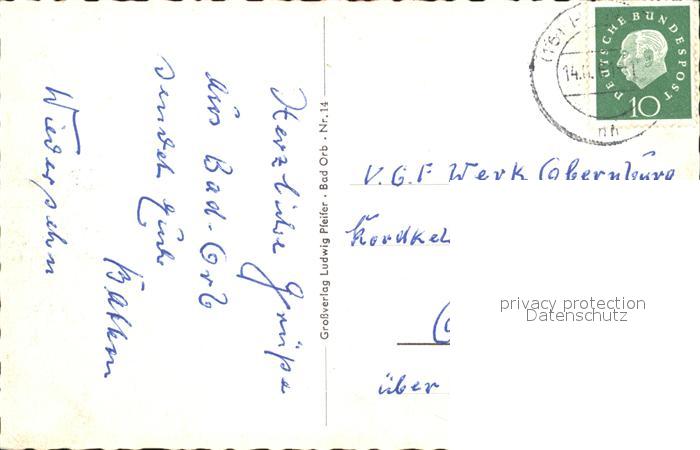 Herzliche Grüße
aus Bad-Orb
sendet Euch
Wiedersehn
Großverlag Ludwig Pfeifer · Bad Orb · Nr. 14
DEUTSCHE BUNDESPOST
10
(16)
14.
V.G.F Werk Obernburg
über
privacy protection
Datenschutz